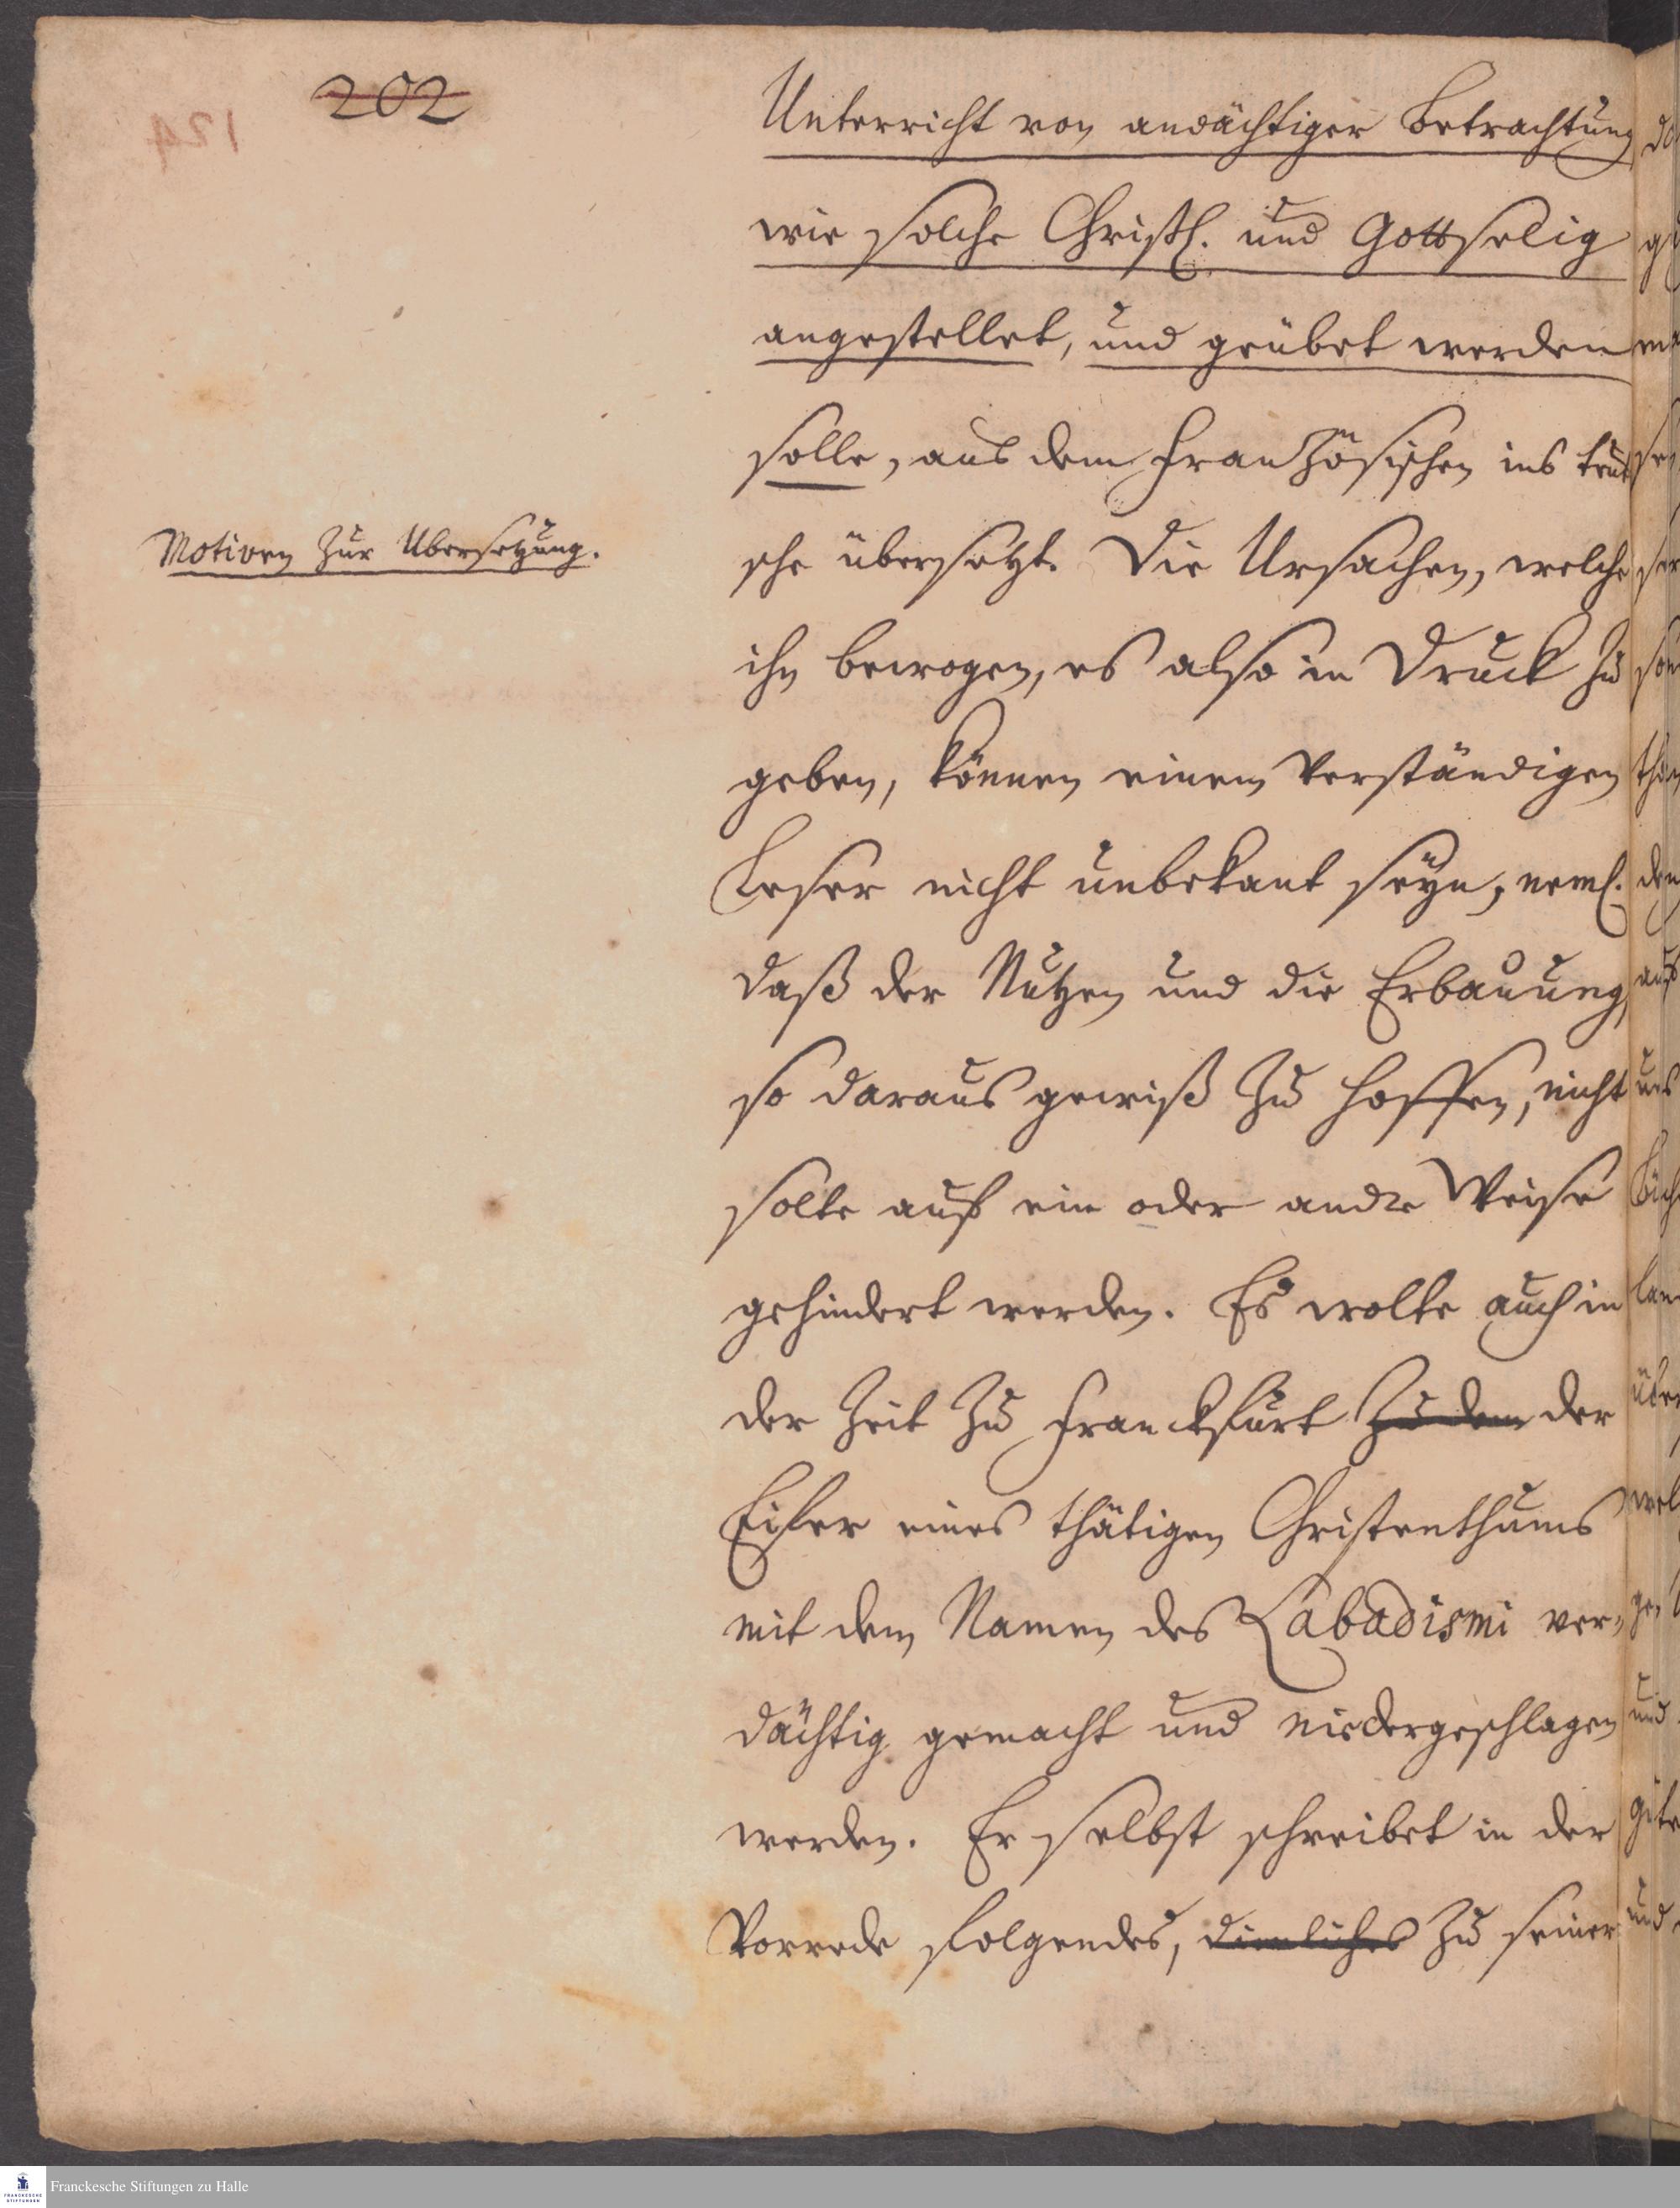 202
Unterricht von andächtiger Betrachtung
wie solche Christl. und Gottselig
angestellet, und geübet werden
solle, aus dem Französischen ins teut
sche übersetzt. Die Ursachen, welche
Motiven zur Ubersetzung.
ihn bewogen, es also in Druck zu
geben, können einem Verständigen
Leser nicht unbekant seyn, neml.
daß der Nutzen und die Erbauung,
so daraus gewiß zu hoffen, nicht
solte auf ein oder andre Weise
gehindert werden. Es wolte auch in
der Zeit zu Franckfurt zu dem der
Eifer eines thätigen Christenthums
mit dem Namen des Labadismi ver-
dächtig gemacht und niedergeschlagen
werden. Er selbst schreibet in der
Vorrede folgendes, zu seiner
Franckesche Stiftungen zu Halle